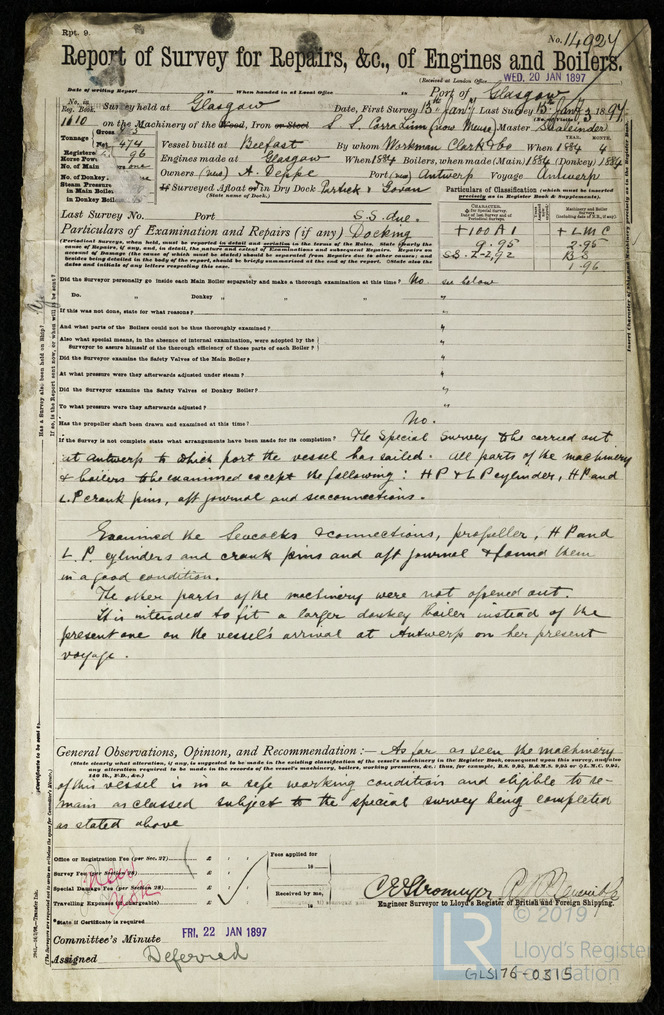 Rpt. 9.
No. 14924
Report of Survey for Repairs, &c., of Engines and Boilers.
(Received at London Office WED. 20 JAN 1897
Date of writing Report to When handed in at Local Office to Port of Glasgow
No. in Reg. Book. Survey held at Glasgow Date, First Survey 13th Jany Last Survey 15th Jany 1897
1610 on the Machinery of the Wood, Iron or Steel S.S. Corra Linn (now Meuse) Master
Tonnage Gross
Net 474 Vessel built at Belfast By whom Workman Clark & Co When 1884 4
Registered Horse Power 96 Engines made at Glasgow When 1884 Boilers, when made (Main) 1884 (Donkey) 1884
No. of Main Boilers one Owners (new) A. Deppe Port (new) Antwerp Voyage Antwerp
Steam Pressure in Main Boilers
in Donkey Boilers
If Surveyed Afloat or in Dry Dock Partick & Govan
(State name of Dock.)
Particulars of Classification (which must be inserted precisely as in Register Book & Supplements).
Last Survey No. Port S.S. due.
Particulars of Examination and Repairs (if any) Docking
(Periodical Surveys, when held, must be reported in detail and seriatim in the terms of the Rules. State clearly the
cause of Repairs, if any, and, in detail, the nature and extent of Examinations and subsequent Repairs. Repairs on
account of Damage (the cause of which must be stated) should be separated from Repairs due to other causes; and
besides being detailed in the body of the report, should be briefly summarized at the end of the report. State also the
dates and initials of any letters respecting this case.
CHARACTER.
Machinery and Boiler Surveys
+100A1 + LMC
9.95 2.95
S.S. 2-2,92 BS
1.96
Did the Surveyor personally go inside each Main Boiler separately and make a thorough examination at this time? No. see below
Do. " Donkey " " " " "
If this was not done, state for what reasons? "
And what parts of the Boilers could not be thus thoroughly examined? "
Also what special means, in the absence of internal examination, were adopted by the
Surveyor to assure himself of the thorough efficiency of those parts of each Boiler? "
Did the Surveyor examine the Safety Valves of the Main Boiler? "
At what pressure were they afterwards adjusted under steam? "
Did the Surveyor examine the Safety Valves of Donkey Boiler? "
To what pressure were they afterwards adjusted? "
Has the propeller shaft been drawn and examined at this time? No.
If the Survey is not complete state what arrangements have been made for its completion? The Special Survey to be carried out
at Antwerp to which port the vessel has sailed. All parts of the machinery
& boilers to be examined except the following: HP & LP cylinder, HP and
L.P crank pins, aft journal and seaconnections.
Examined the Seacocks & connections, propeller, HP and
L.P. cylinders and crank pins and aft journal & found them
in a good condition.
The other parts of the machinery were not opened out.
It is intended to fit a larger donkey boiler instead of the
present one on the vessel's arrival at Antwerp on her present
voyage.
General Observations, Opinion, and Recommendation:— As far as seen the machinery
(State clearly what alteration, if any, is suggested to be made in the existing classification of the vessel's machinery in the Register Book, consequent upon this survey, and also
any alteration required to be made in the records of the vessel's machinery, boilers, working pressures, &c.; thus, for example, B.S. 9,95, B.&M.S. 9,95 or + L.M.C. 9,95,
140 lb., F.D., &c.)
of this vessel is in a safe working condition and eligible to re-
main as classed subject to the special survey being completed
as stated above
Office or Registration Fee (per Sec. 27) £ : :
Survey Fee (per Section 28) £ : :
Special Damage Fee (per Section 28) £ : :
Travelling Expenses (if chargeable) £ : :
Fees applied for
18
Received by me,
18
C E Stromeyer
Engineer Surveyor to Lloyd's Register of British and Foreign Shipping.
*State if Certificate is required
Committee's Minute FRI. 22 JAN 1897
Assigned Deferred
© 2019
LR
Lloyd's Register
Foundation
GLS176-0315